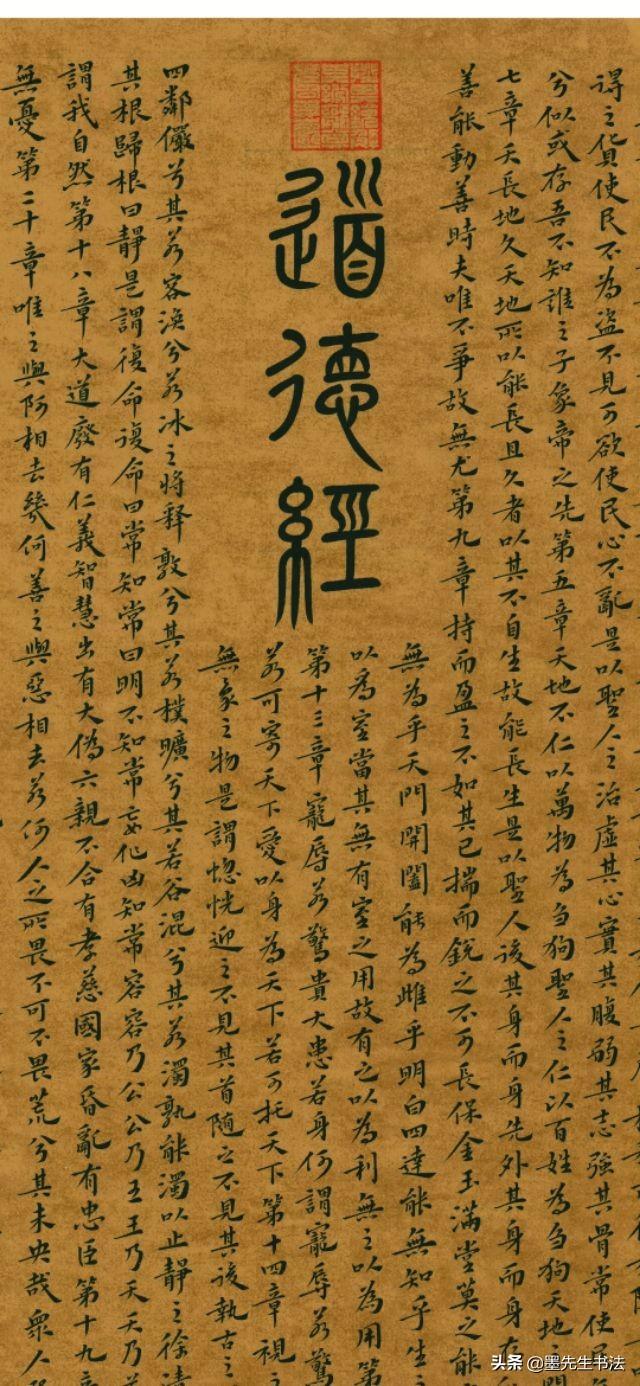 得之貨使民不為盜不見可欲使民心不亂是以聖人之治虛其心實其腹弱其志強其骨常使民
兮似或存吾不知誰之子象帝之先第五章天地不仁以萬物為芻狗聖人之仁以百姓為芻狗天地之
七章天長地久天地所以能長且久者以其不自生故能長生是以聖人後其身而身先外其身而身存
善能動善時夫唯不爭故無尤第九章持而盈之不如其已揣而銳之不可長保金玉滿堂莫之能
道德經
無為乎天門開闔能為雌乎明白四達能無知乎生之
以為室當其無有室之用故有之以為利無之以為用第
第十三章寵辱若驚貴大患若身何謂寵辱若驚
若可寄天下愛以身為天下若可托天下第十四章視之
無象之物是謂惚恍迎之不見其首隨之不見其後執古之
四鄰儼兮其若容渙兮若冰之將釋敦兮其若樸曠兮其若谷混兮其若濁孰能濁以止靜之徐清
其根歸根曰靜是謂復命復命曰常知常曰明不知常妄作凶知常容容乃公公乃王王乃天天乃道
謂我自然第十八章大道廢有仁義智慧出有大偽六親不合有孝慈國家昏亂有忠臣第十九章
無憂第二十章唯之與阿相去幾何善之與惡相去若何人之所畏不可不畏荒兮其未央哉眾人
头条 @墨先生书法